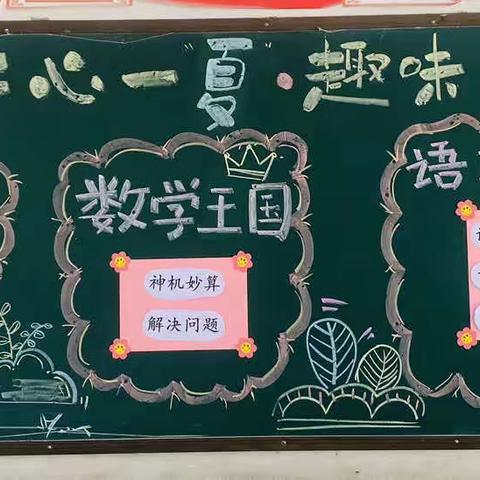 心一夏·趣味
数学王国
神机妙算
解决问题
语